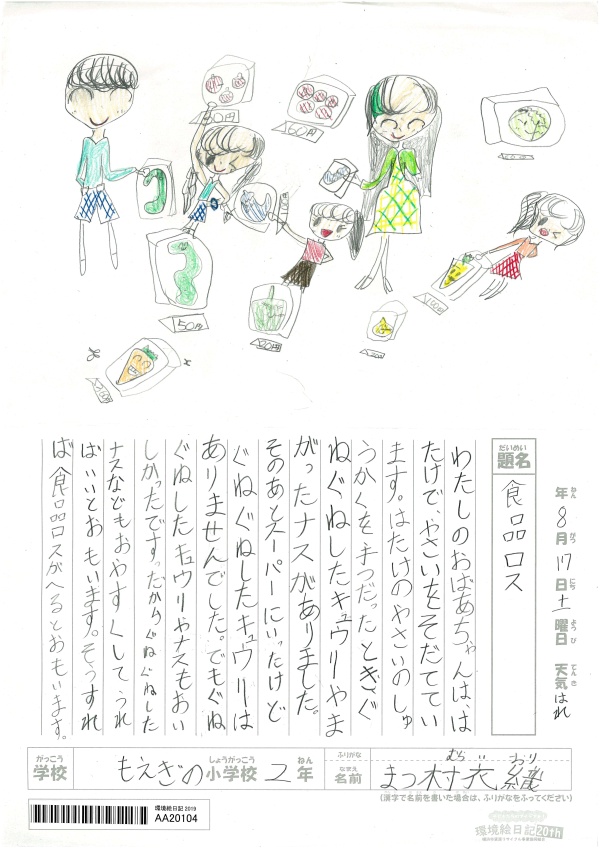 00円
60円
50円
20円
100円
年ねん 8月がつ 17日にち 土曜日ようび 天気てんき はれ
題名だいめい 食品ロス
わたしのおばあちゃんは、は
たけで、やさいをそだててい
ます。はたけのやさいのしゅ
うかくを手つだったとき、ぐ
ねぐねしたキュウリやま
がったナスがありました。
そのあとスーパーにいったけど
ぐねぐねしたキュウリは
ありませんでした。でもぐね
ぐねしたキュウリやナスもおい
しかったです。だからぐねぐねした
ナスなどもおやすくしてうれ
ばいいとおもいます。そうすれ
ば食品ロスがへるとおもいます。
学校がっこう もえぎの小学校しょうがっこう 2年ねん
ふりがな むら おり
名前なまえ まつ村衣織
(漢字で名前を書いた場合は、ふりがなをふってください)
環境絵日記 2019
AA20104
環境絵日記20th